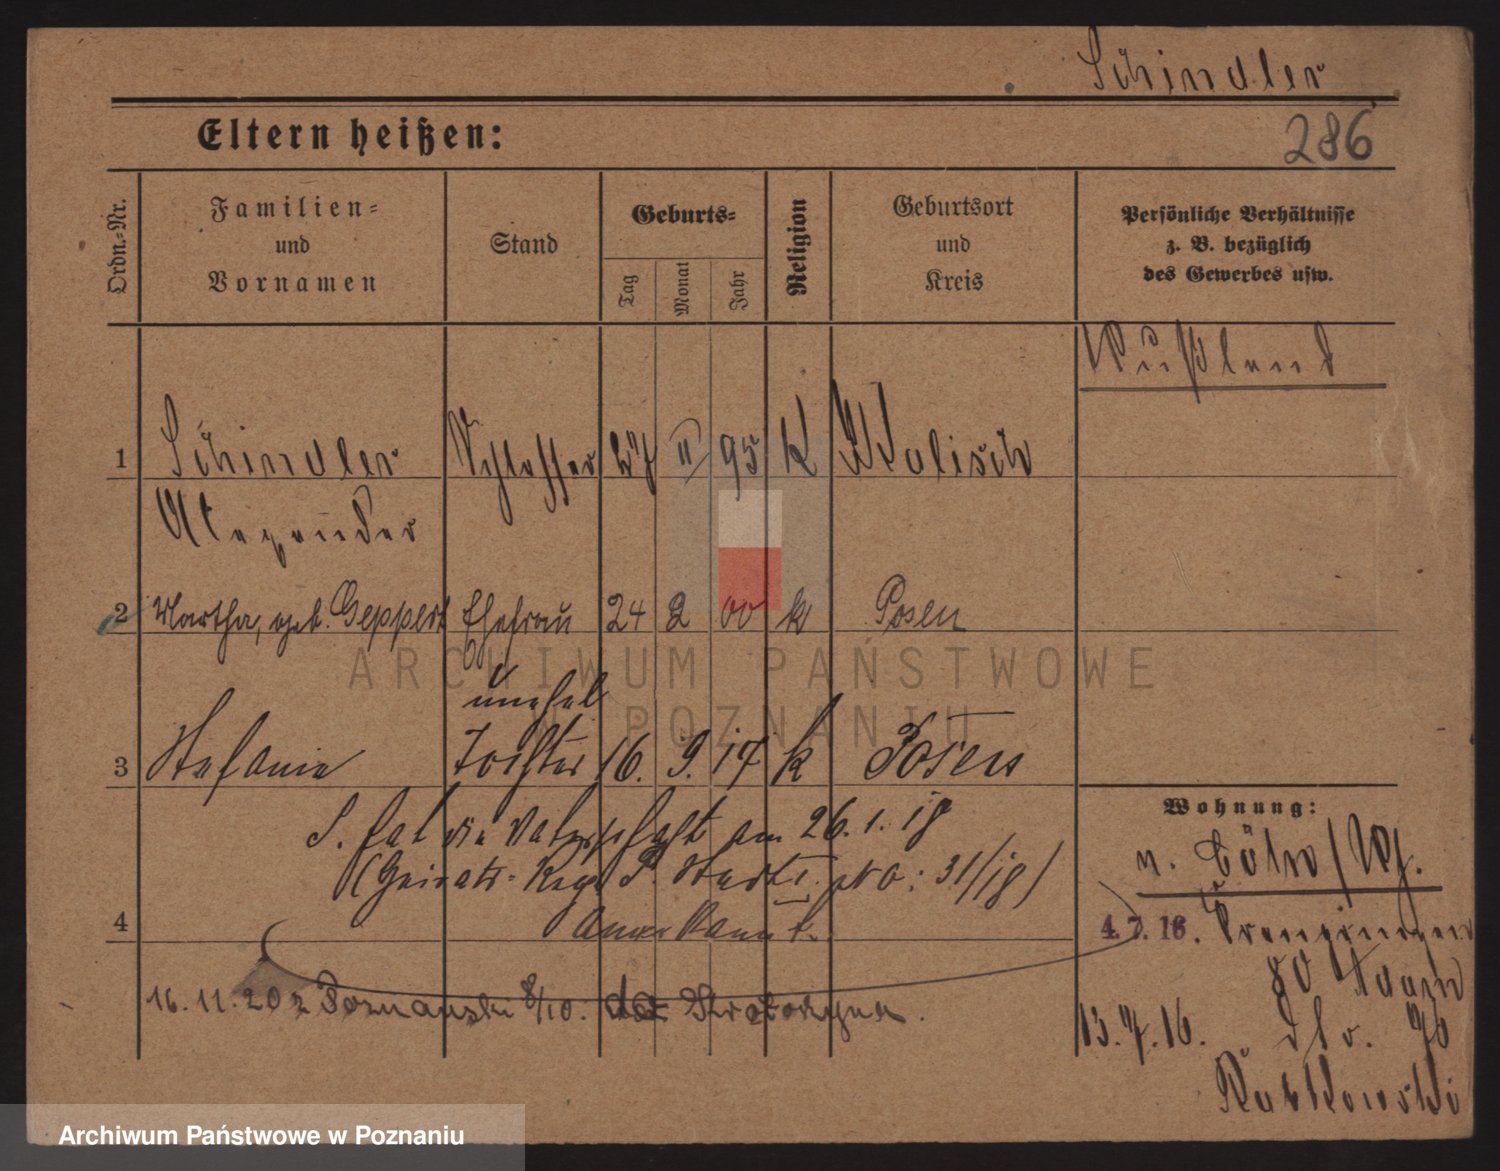 Schindler
Eltern heißen:
286
Ordn.-Nr.
Familien-
und
Vornamen
Stand
Geburts-
Tag
Monat
Jahr
Religion
Geburtsort
und
Kreis
Persönliche Verhältnisse
z. B. bezüglich
des Gewerbes usw.
Rußland
1 Schindler Schlosser 27 II 95 K Kalisch
Alexander
2 Martha, geb. Geppert Ehefrau 24 2 00 k Posen
unehel
3 Stefanie Tochter 16. 9. 17 k Posen
S. hat die Vaterschaft am 26.1.18
(Heirats-Reg. P. Stadt No: 31/18)
anerkannt.
4
Wohnung:
v. Cöln/Rh.
4. 7. 16.
80
13.7.16. 76
Rutkowski
16.11.20 z Poznański 8/10. do Strzałkowa.
ARCHIWUM PAŃSTWOWE
W POZNANIU
Archiwum Państwowe w Poznaniu